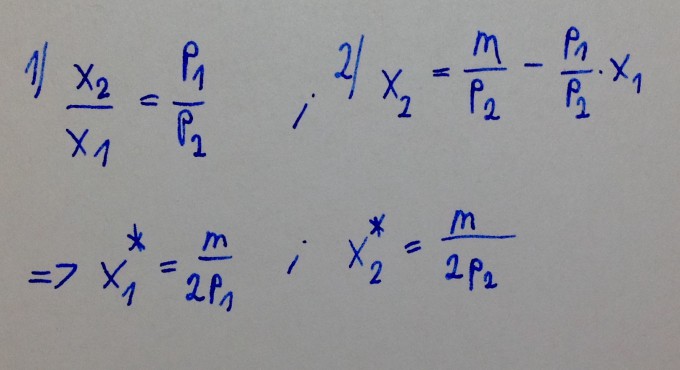 1) x₂/x₁ = p₁/p₂ ; 2) x₂ = m/p₂ − p₁/p₂ · x₁
=> x₁* = m/2p₁ ; x₂* = m/2p₂